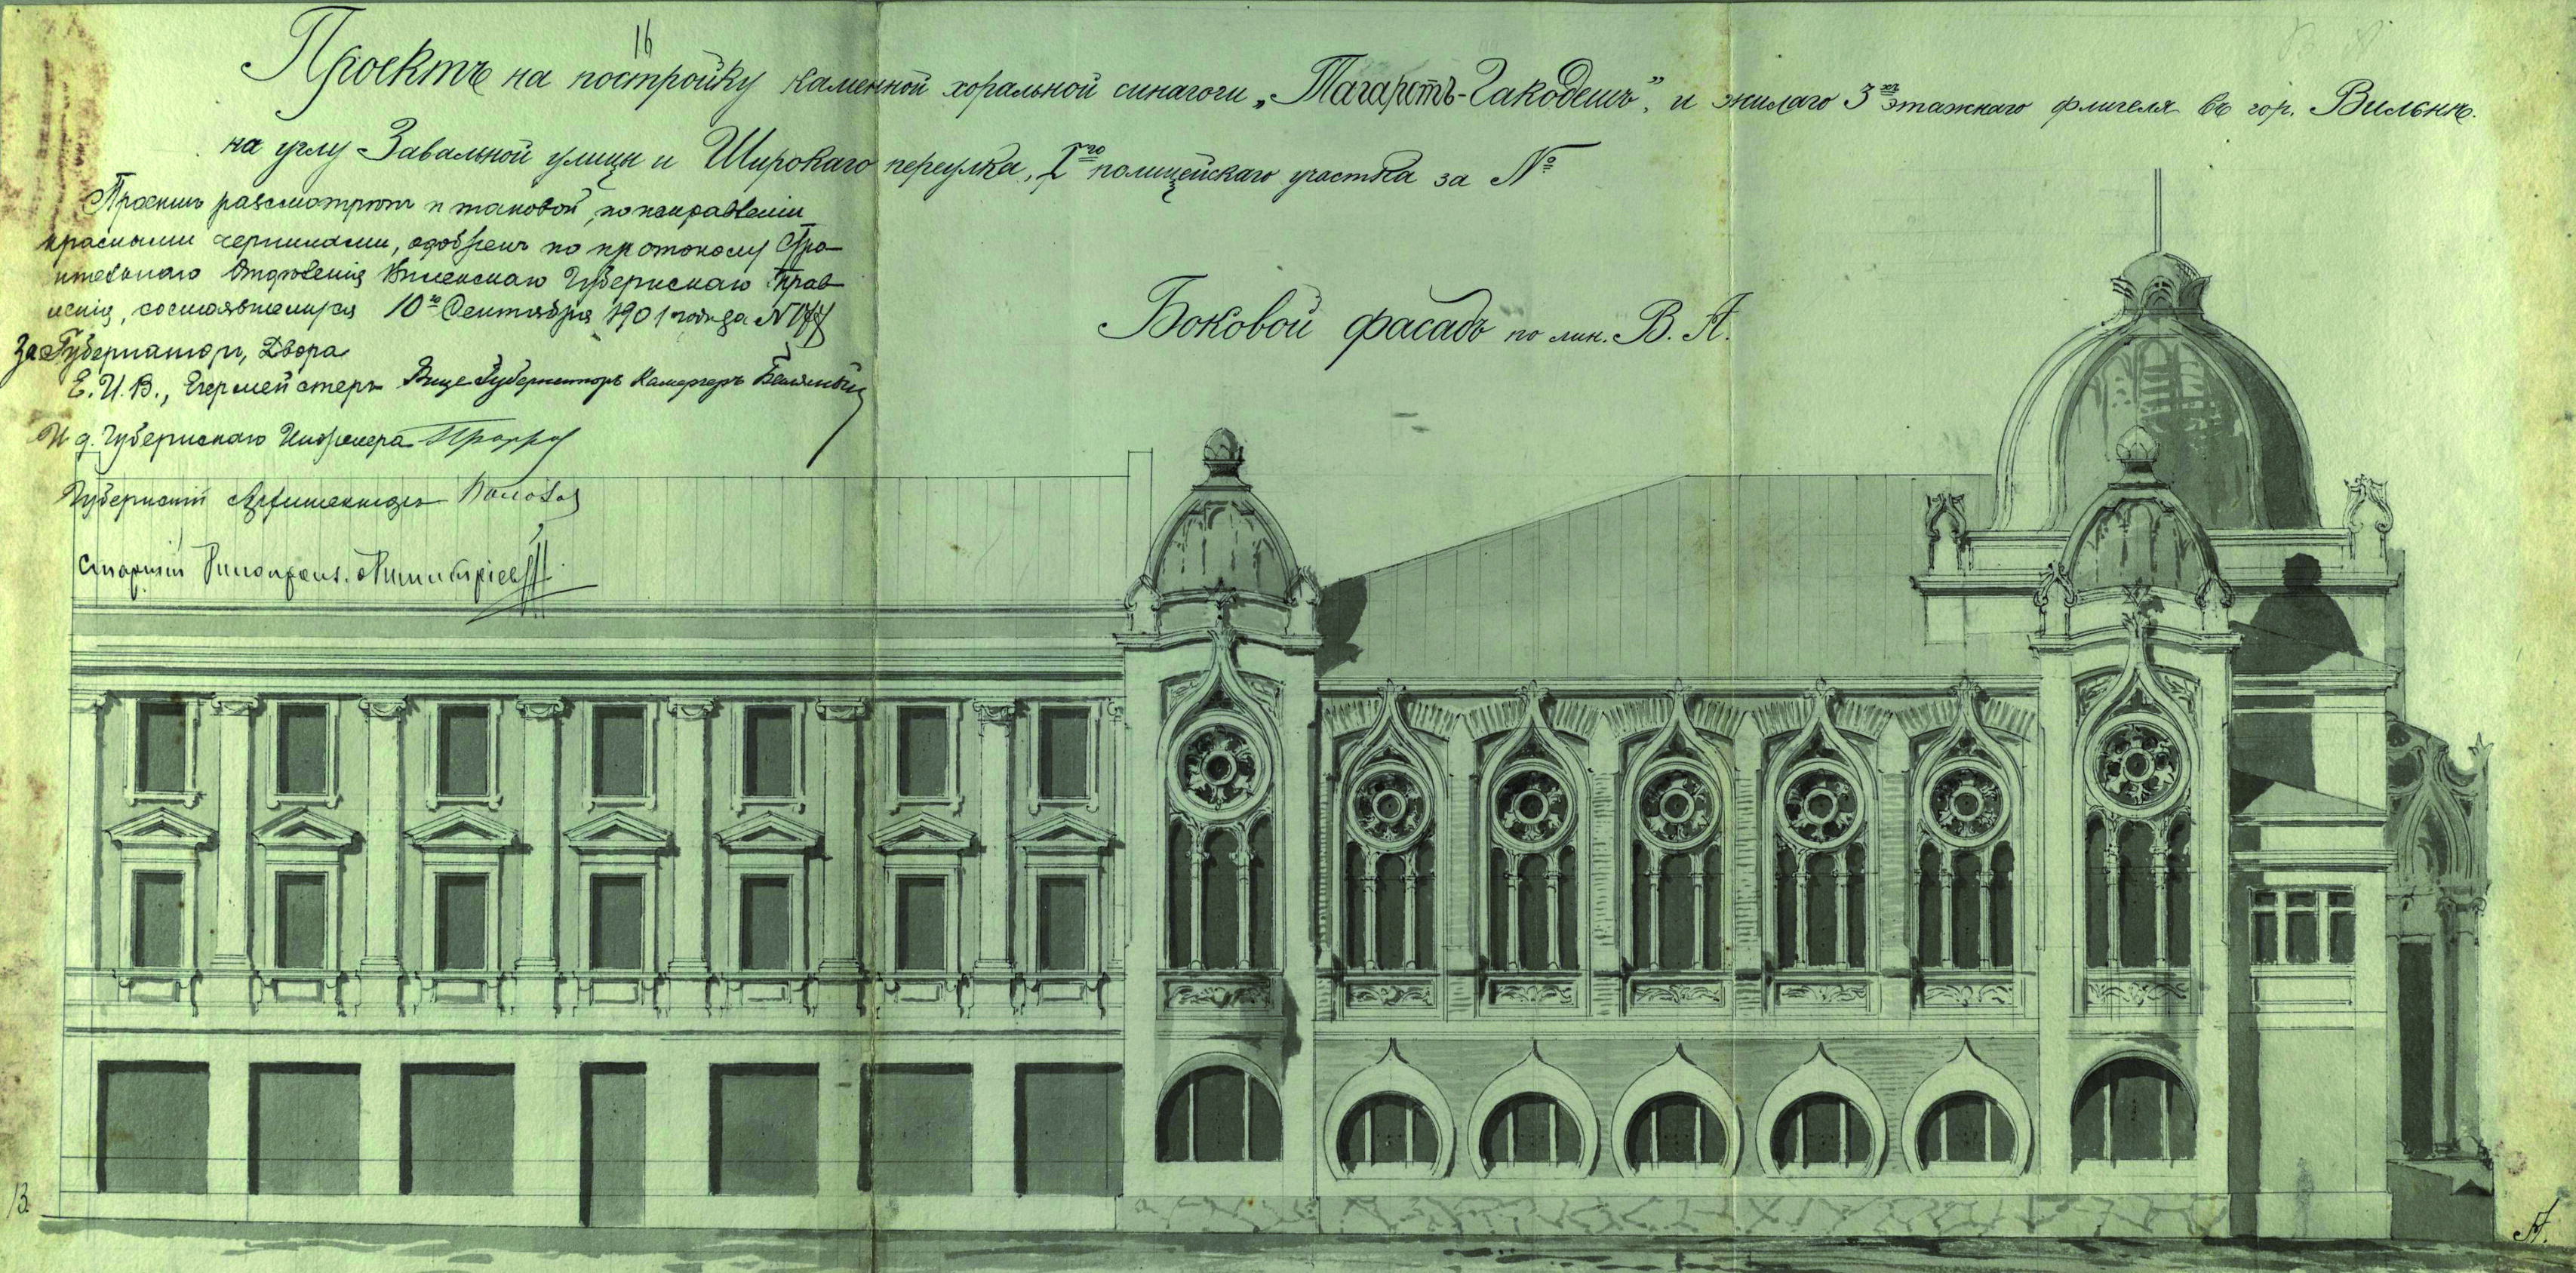 16
Проектъ на постройку каменной хоральной синагоги „Тагаротъ-Гакодешъ”, и жилаго 3хъ этажнаго флигеля въ гор. Вильнѣ.
на углу Завальной улицы и Широкаго переулка, Iго полицейскаго участка за №
разсмотрѣнъ и таковой, по исправленіи
красными чернилами, одобренъ по протоколу Стро-
ительнаго Отдѣленія Виленскаго Губернскаго Прав-
ленія, состоявшемуся 10го Сентября 1901 года за №
За Губернатора, Двора
Е. И. В., Егермейстеръ Вице-Губернаторъ Камергеръ
И. д. Губернскаго Инженера
Губернскій Архитекторъ
Старшій
Боковой фасадъ по лин. В. А.
В.
А.